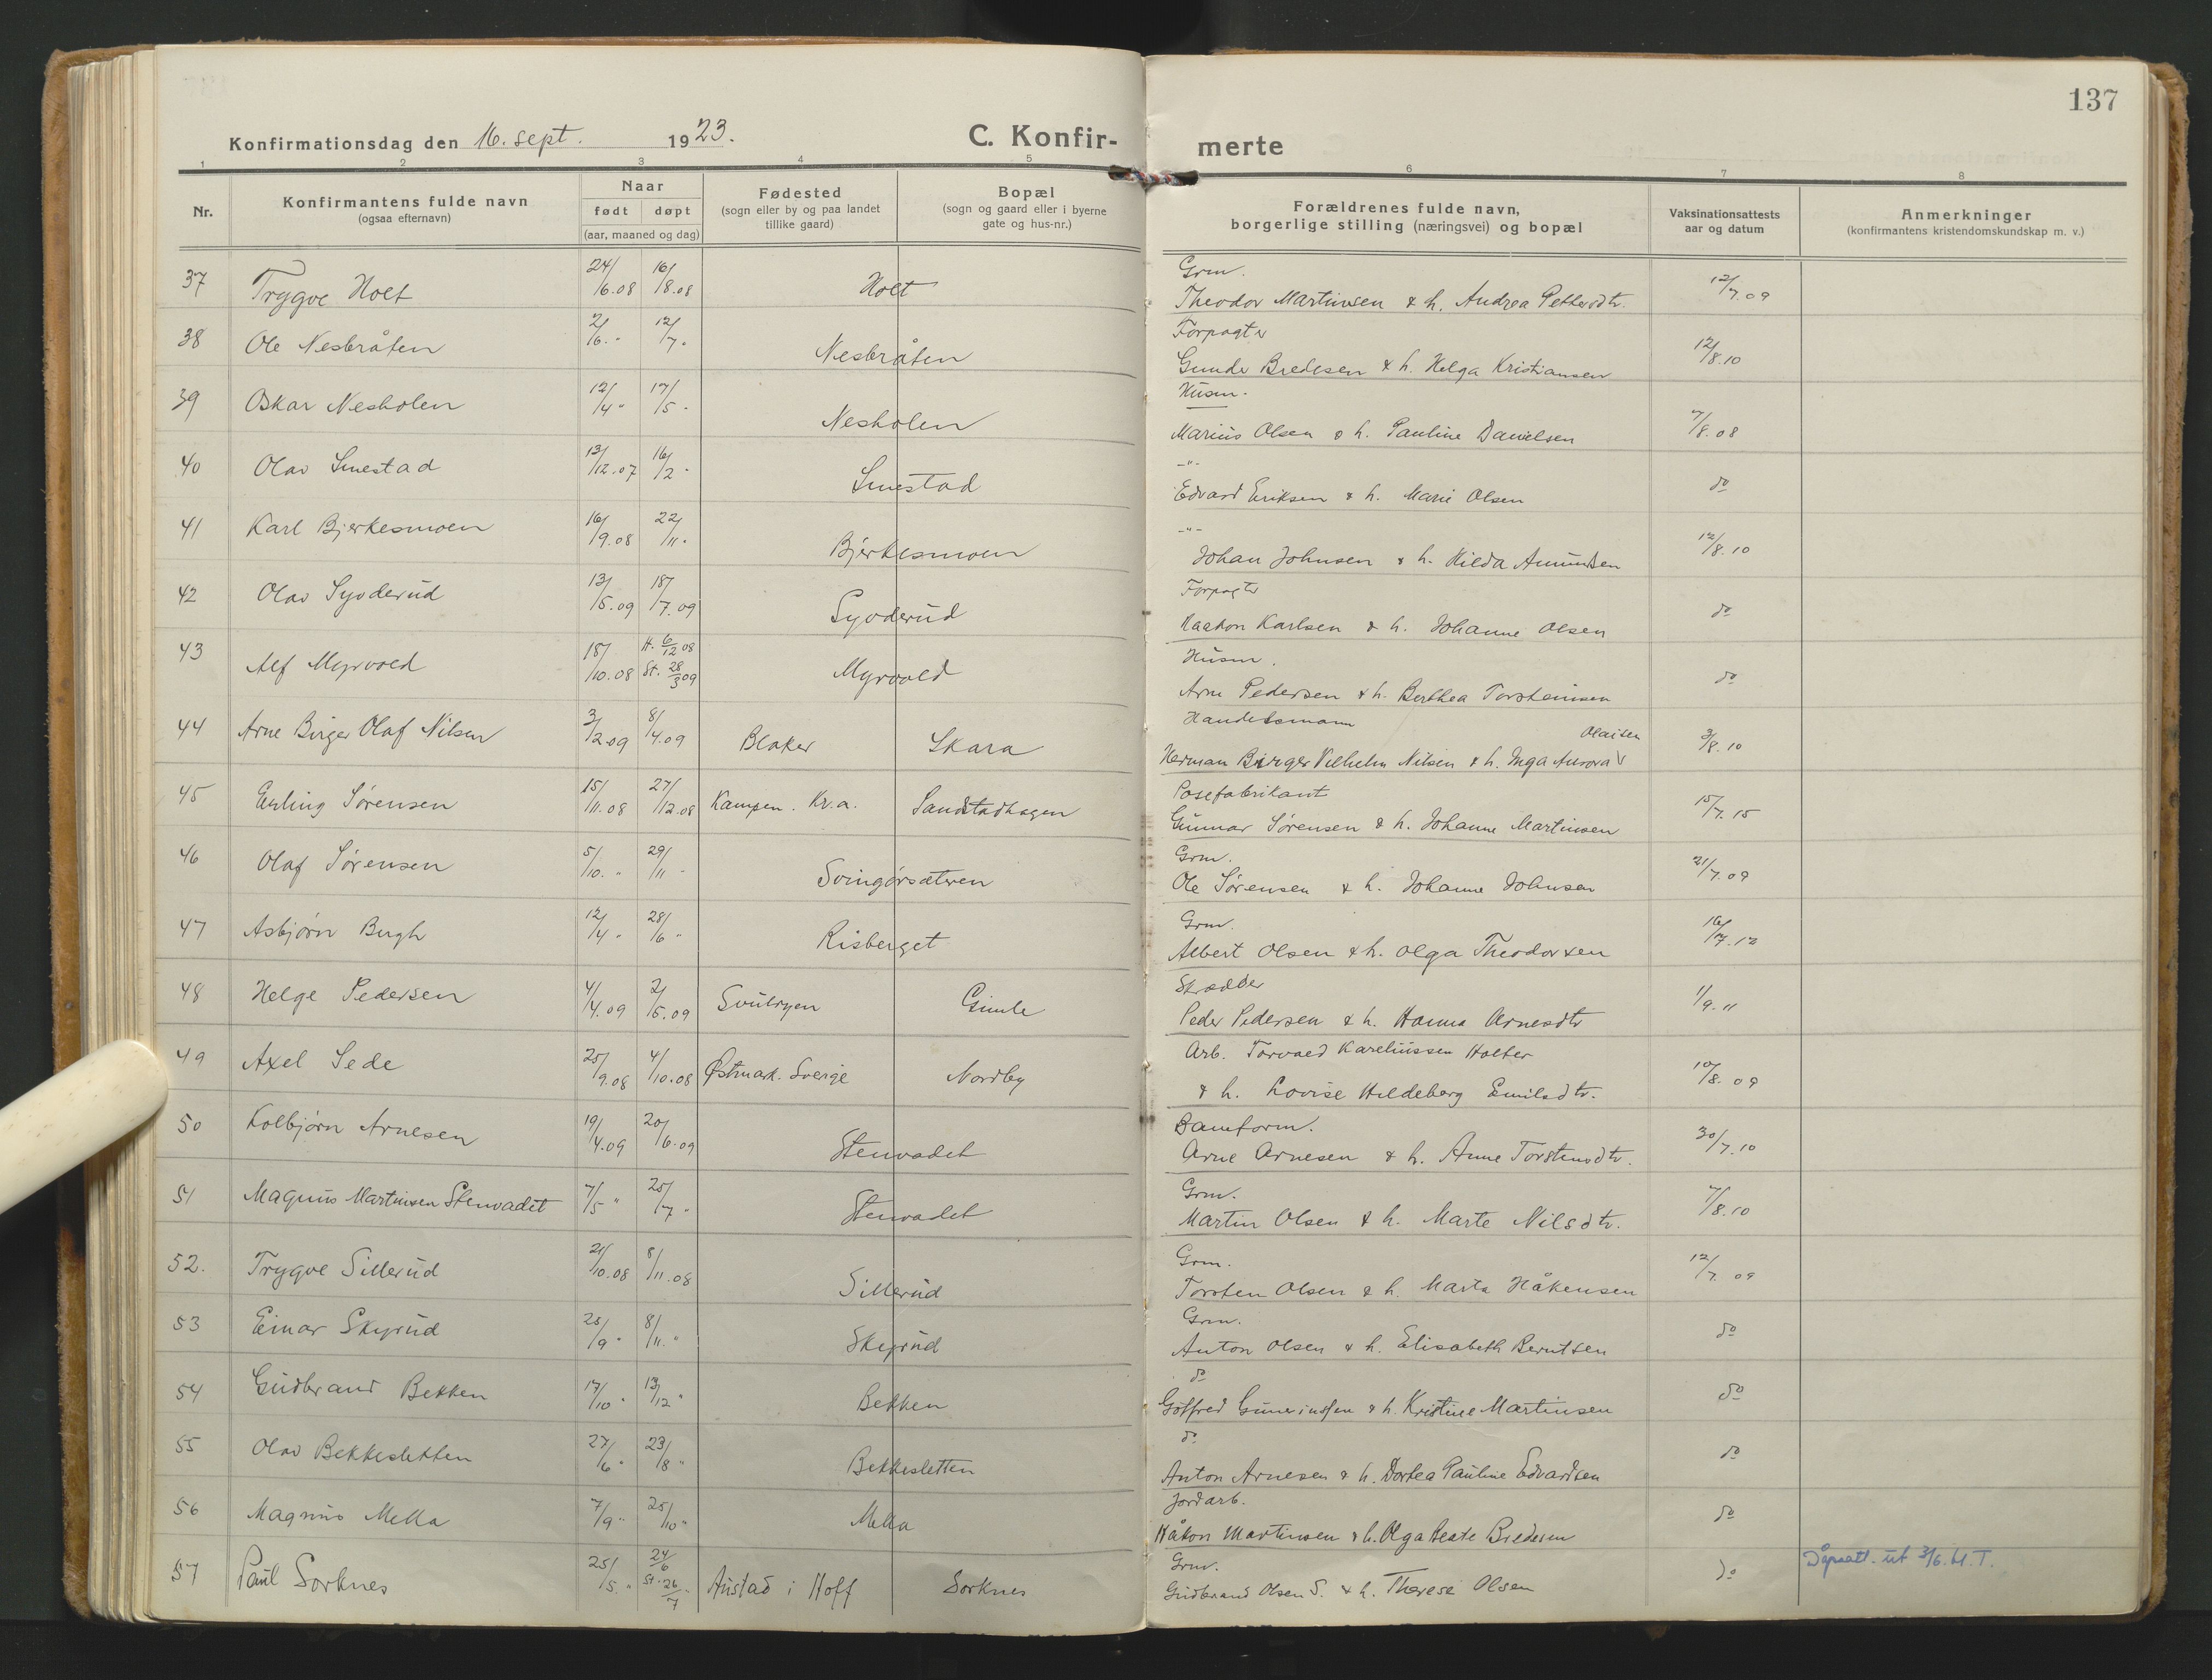 137
Konfirmationsdag den 16. sept. 1923.
C. Konfir-
merte
1 2 3 4 5 6 7 8
Nr.
Konfirmantens fulde navn
(ogsaa efternavn)
Naar
født døpt
(aar, maaned og dag)
Fødested
(sogn eller by og paa landet
tillike gaard)
Bopæl
(sogn og gaard eller i byerne
gate og hus-nr.)
Forældrenes fulde navn,
borgerlige stilling (næringsvei) og bopæl
Vaksinationsattests
aar og datum
Anmerkninger
(konfirmantens kristendomskundskap m. v.)
Grm.
37 Trygve Holt 24/6.08 16/8.08 Holt Theodor Martinsen & h. Andrea Pettersdtr. 12/7.09
Forpagter
38 Ole Nesbråten 2/6. " 12/7. Nesbråten Gunder Bredesen & h. Helga Kristiansen 12/8.10
Husm.
39 Oskar Nesholen 12/4 " 17/5 - Nesholen Marius Olsen & h. Pauline Danielsen 7/8.08
-"-
40 Olav Smestad 13/12.07 16/2 - Smestad Edvard Eriksen & h. Marie Olsen do
-"-
41 Karl Bjerkesmoen 16/9.08 22/11. Bjerkesmoen Johan Johnsen & h. Hilda Amundsen 12/8.10
Forpagter
42 Olav Syvderud 13/5.09 18/7.09 Syvderud Haakon Karlsen & h. Johanne Olsen do
Husm.
43 Alf Myrvold 18/10.08 H. 6/12 08 St. 28/3 09 Myrvold Arne Pedersen & h. Berthea Torsteinsen do
Handelsmann
44 Arne Birger Olaf Nilsen 3/2.09 8/4.09 Blaker Skara Herman Birger Vilhelm Nilsen & h. Inga Aurora Olaisen 3/8.10
Posefabrikant
45 Erling Sørensen 15/11.08 27/12.08 Kampen. Kr.a. Sandstadhagen Gunnar Sørensen & h. Johanne Martinsen 15/7.15
Grm.
46 Olaf Sørensen 5/10. " 29/11 - Svingørsætren Ole Sørensen & h. Johanne Johnsen 21/7.09
Grm.
47 Asbjørn Bugh 12/4 " 28/6 " Risberget Albert Olsen & h. Olga Theodorsen 16/7.12
Skrædder
48 Helge Pedersen 4/4.09 2/5.09 Svulryen Gimle Peder Pedersen & h. Hanna Arnesdtr 1/9.11
Arb. Torvald Kareliussen Holter
49 Axel Sede 25/9.08 4/10.08 Østmark. Sverige Nordby & h. Lovise Hildeberg Emilsdtr. 10/8.09
Baneform.
50 Kolbjørn Arnesen 19/4.09 20/6.09 Stenvadet Arne Arnesen & h. Anne Torstensdtr. 30/7.10
Grm.
51 Magnus Martinsen Stenvadet 7/5 " 25/7 " Stenvadet Martin Olsen & h. Marte Nilsdtr. 7/8.10
Grm.
52. Trygve Sillerud 21/10.08 8/11.08 Sillerud Torsten Olsen & h. Marta Håkensen 12/7.09
Grm.
53 Einar Skyrud 28/9 " 8/11. " Skyrud Anton Olsen & h. Elisabeth Berntsen do
do
54 Gudbrand Bekken 17/10 " 13/12 " Bekken Gotfred Gunerius­sen & h. Kristine Martinsen do
do
55 Olav Bekkesletten 27/6 " 23/8 " Bekkesletten Anton Arnesen & h. Dortea Pauline Edvardsen do
Jordarb.
56 Magnus Mella 7/9 " 25/10 " Mella Håkon Martinsen & h. Olga Beate Bredesen do
Grm.
57 Paul Sorknes 25/5. " 24/6 St. 26/7 " Austad i Hoff Sorknes Gudbrand Olsen S. & h. Therese Olsen do Dåpsatt. ut 3/6. 41. T.